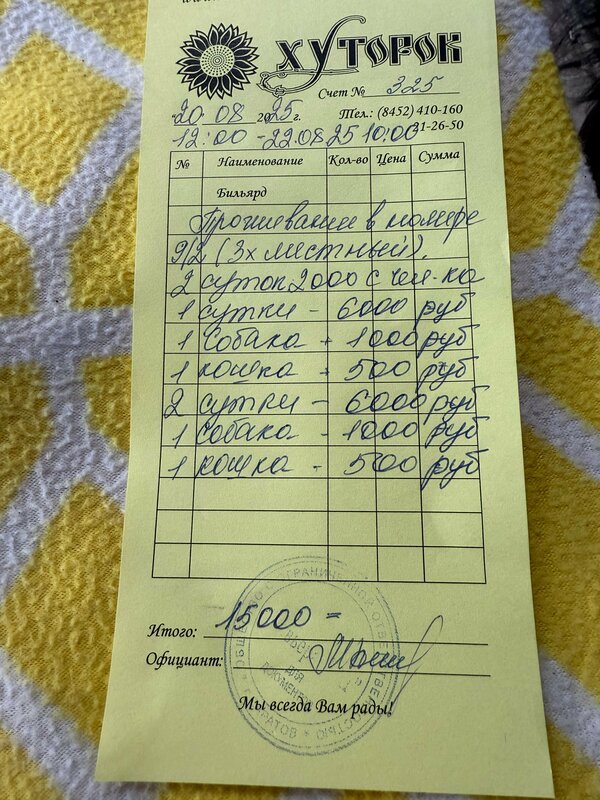 ХУТОРОК
Счет № 325
20. 08 2025г. Тел.: (8452) 410-160
12:00 - 22.08 25 10:00 31-26-50
№ Наименование Кол-во Цена Сумма
Бильярд
Проживание в номере
9/2 (3х местный).
2 суток 2000 с чел-ка
1 сутки - 6000 руб
1 собака - 1000 руб
1 кошка - 500 руб
2 сутки - 6000 руб
1 собака - 1000 руб
1 кошка - 500 руб
Итого: 15000 =
Официант:
ОБЩЕСТВО С ОГРАНИЧЕННОЙ ОТВЕТСТВЕННОСТЬЮ
ДЛЯ
ДОКУМЕНТОВ
САРАТОВ
Мы всегда Вам рады!